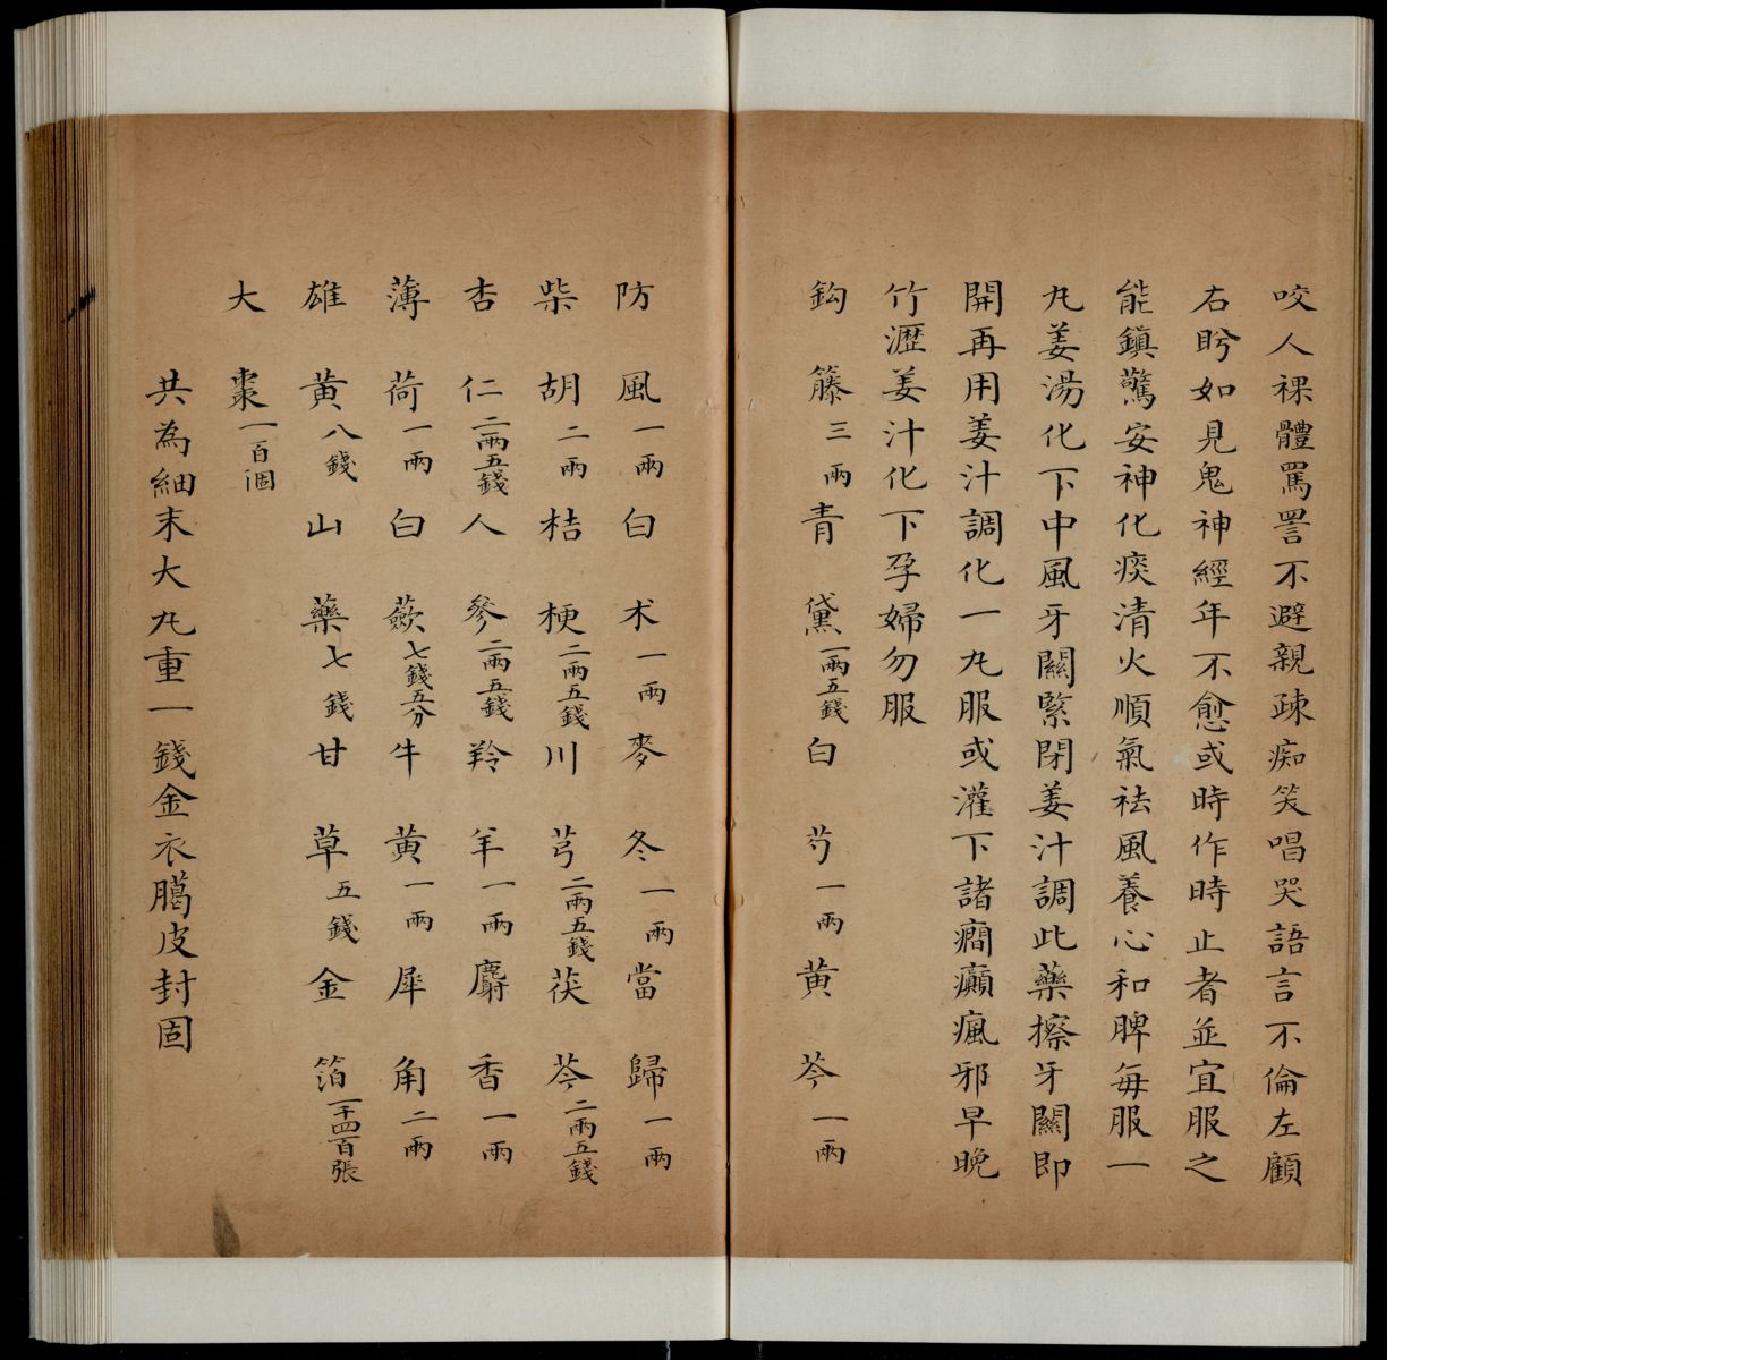 咬人裸體罵詈不避親疎痴笑唱哭語言不倫左顧
右盻如見鬼神經年不愈或時作時止者並宜服之
能鎮驚安神化痰清火順氣祛風養心和脾每服一
丸姜湯化下中風牙關緊閉姜汁調此藥擦牙關即
開再用姜汁調化一丸服或灌下諸癇癲瘋邪早晚
竹瀝姜汁化下孕婦勿服
鈎籐三兩青黛一兩五錢白芍一兩黃芩一兩
防風一兩白朮一兩麥冬一兩當歸一兩
柴胡二兩桔梗二兩五錢川芎二兩五錢茯苓二兩五錢
杏仁二兩五錢人參二兩五錢羚羊一兩麝香一兩
薄荷一兩白蘞七錢五分牛黃一兩犀角二兩
雄黃八錢山藥七錢甘草五錢金箔一千四百張
大棗一百個
共為細末大丸重一錢金衣臈皮封固